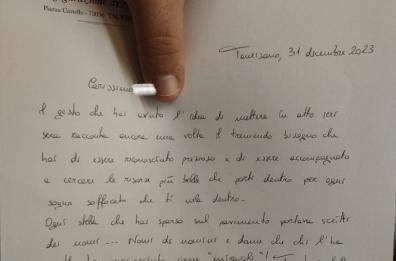 Piazza Castello - 73056 TAURISANO
Taurisano, 31 dicembre 2023
Carissimo
Il gesto che hai avuto l'idea di mettere in atto ieri
sera racconta ancora una volta il tremendo bisogno che
hai di essere riconosciuto prezioso e di essere accompagnato
a cercare le risorse più belle che porti dentro per ogni
sogno soffocato che ti urla dentro.
Ogni stella che hai sparso sul pavimento portava scritto
dei nomi... Nomi di uomini e donne che chi l'ha